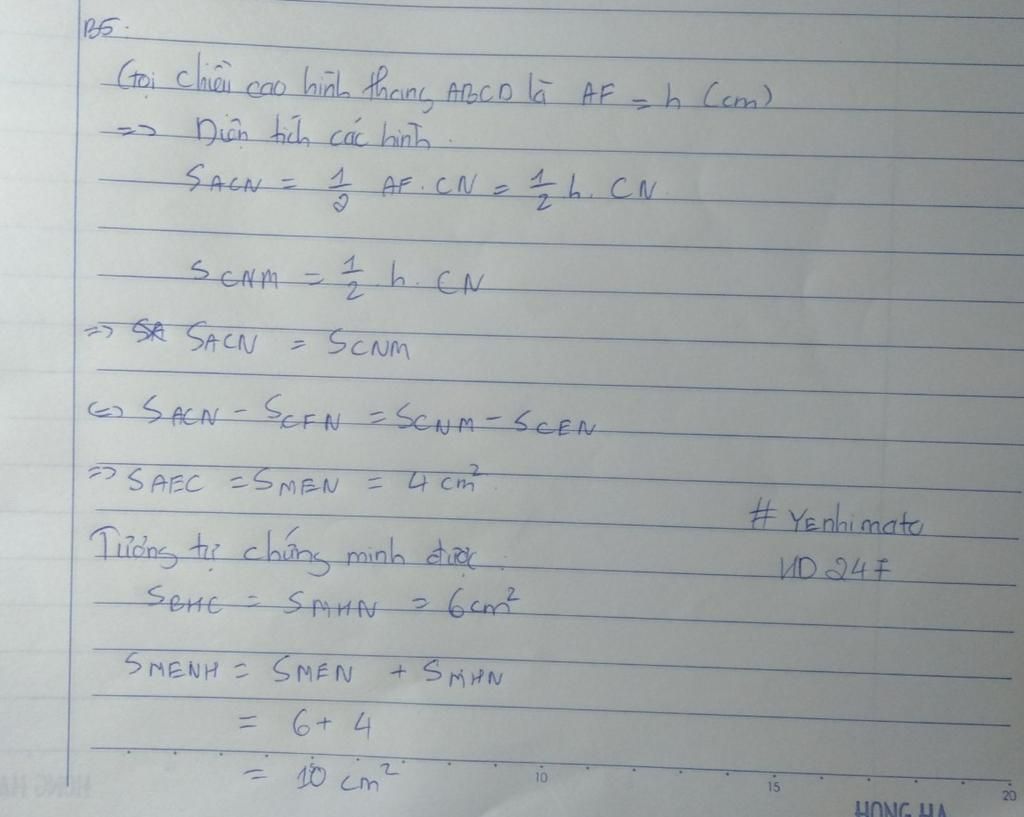 B5.
Gọi chiều cao hình thang ABCD là AF = h (cm)
=> Diện tích các hình.
SACN = 1/2 AF. CN = 1/2 h. CN
SCNM = 1/2 h. CN
=> SACN = SCNM
<=> SACN - SCFN = SCNM - SCEN
=> SAEC = SMEN = 4 cm²
# Yenhimato
Tương tự chứng minh được.
HD 247
SBHC = SMHN = 6cm²
SMENH = SMEN + SMHN
= 6 + 4
= 10 cm²
10
15
20
HONG HA